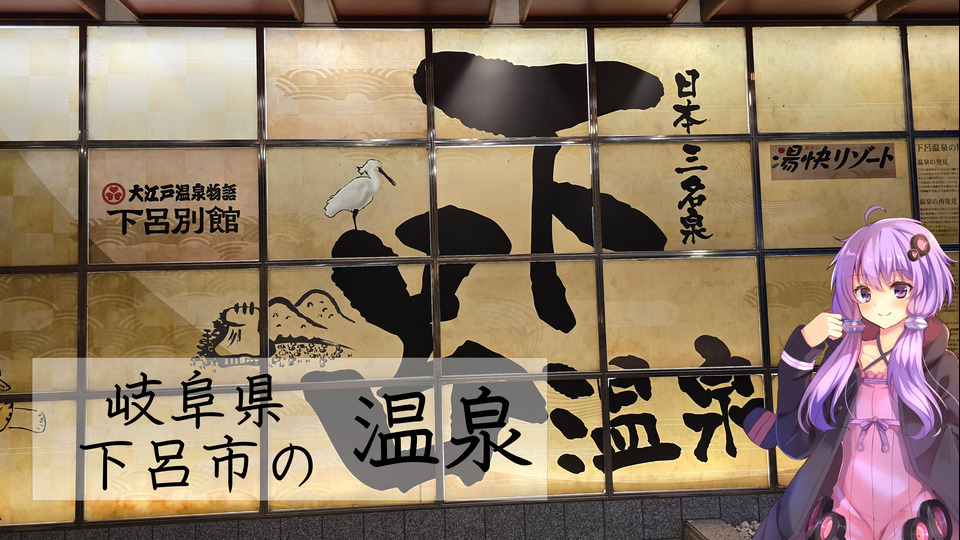 日本三名泉
下呂温泉
大江戸温泉物語
下呂別館
湯快リゾート
下呂温泉の
温泉の発見
温泉の再発見
岐阜県
下呂市の
温泉